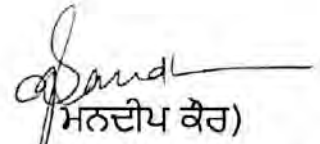 ਮਨਦੀਪ ਕੌਰ)